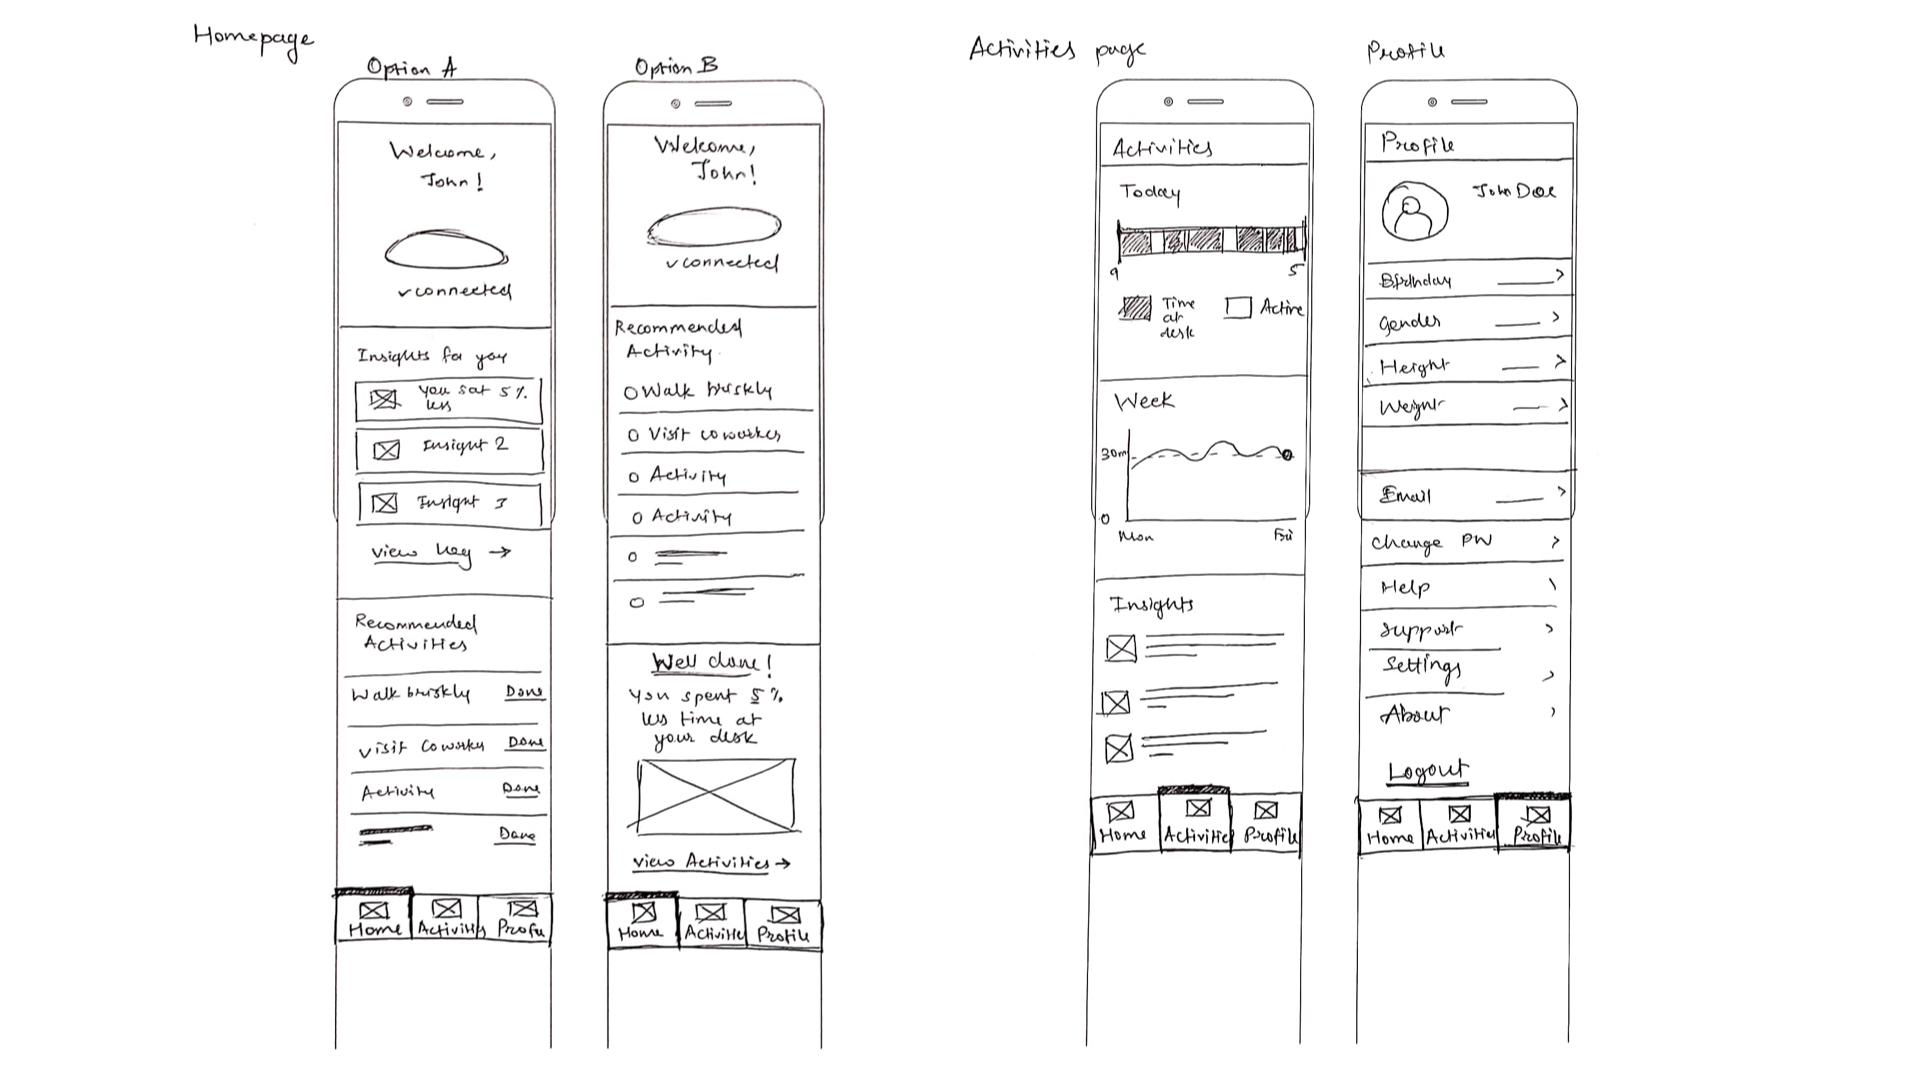 Homepage
Option A
Welcome,
John!
✓connected
Insights for you
You sat 5%
less
Insight 2
Insight 3
view →
Recommended
Activities
Walk briskly Done
Visit Coworker Done
Activity Done
Done
Home Activities
Option B
Welcome,
John!
✓connected
Recommended
Activity
Walk briskly
Visit coworker
Activity
Activity
Well done!
You spent 5%
less time at
your desk
view Activities →
Home Activitie Profile
Activities page
Activities
Today
9 5
Time
at
desk
Active
Week
30m
0
Mon Fri
Insights
Home Activitie Profile
Profile
Profile
John Doe
Birthday >
Gender >
Height >
Weight >
Email >
Change PW >
Help
Support >
Settings >
About >
Logout
Home Activitie Profile